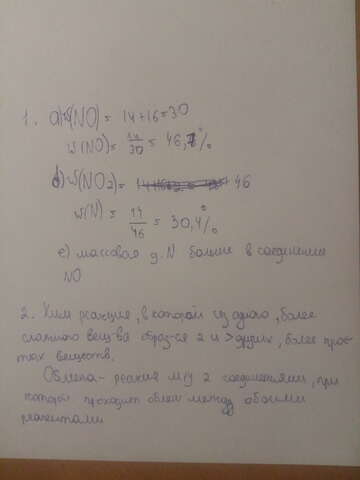 1. a) W(NO) = 14+16=30
W(NO)= 14/30 = 46,7%
b) W(NO2)= 46
W(N) = 14/46 = 30,4%
с) массовая д. N больше в соединение
NO
2. Хим реакция, в которой из одного, более
сложного вещ-ва образ-ся 2 и > других, более прос-
тых веществ.
Обмена - реакия м/у 2 соединениями, при
которой проходит обмен между обоими
реагентами